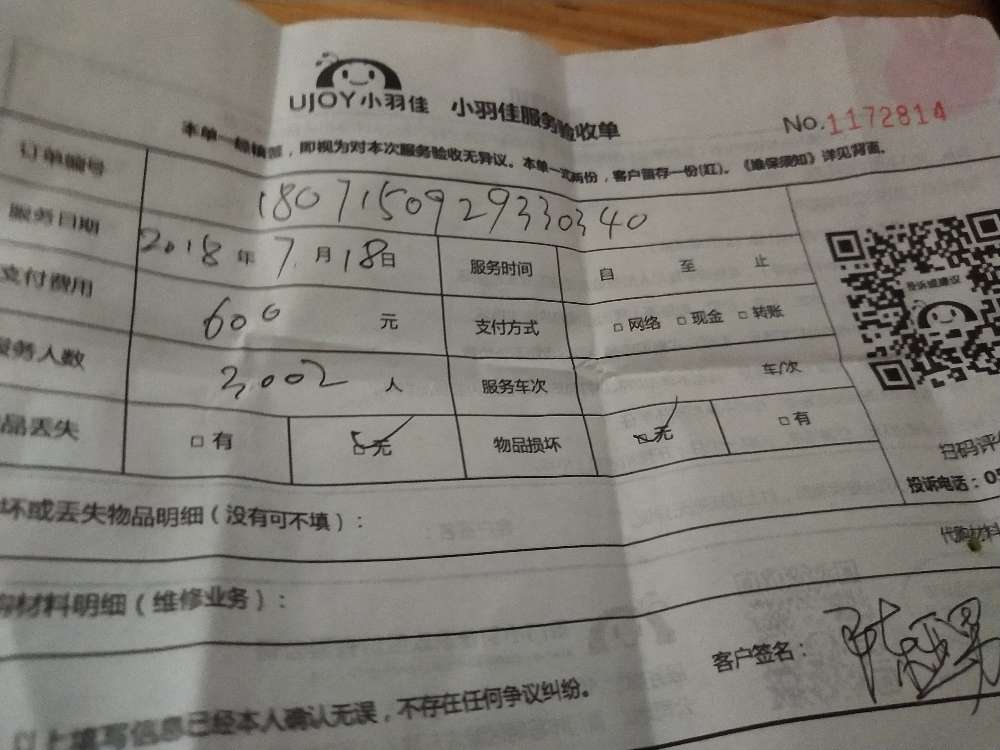 UJOY小羽佳 小羽佳服务验收单
No.1172814
本单一经填写，即视为对本次服务验收无异议。本单一式两份，客户留存一份(红)。《维保须知》详见背面。
订单编号 1807150929330340
服务日期 2018年7月18日 服务时间 自 至 止
支付费用 600 元 支付方式 □网络 □现金 □转账
服务人数 2,002 人 服务车次 车/次
品丢失 □有 □无 物品损坏 □无 □有
投诉或建议
扫码评
投诉电话：0
坏或丢失物品明细（没有可不填）：
代购材料
材料明细（维修业务）：
客户签名：
以上填写信息已经本人确认无误，不存在任何争议纠纷。